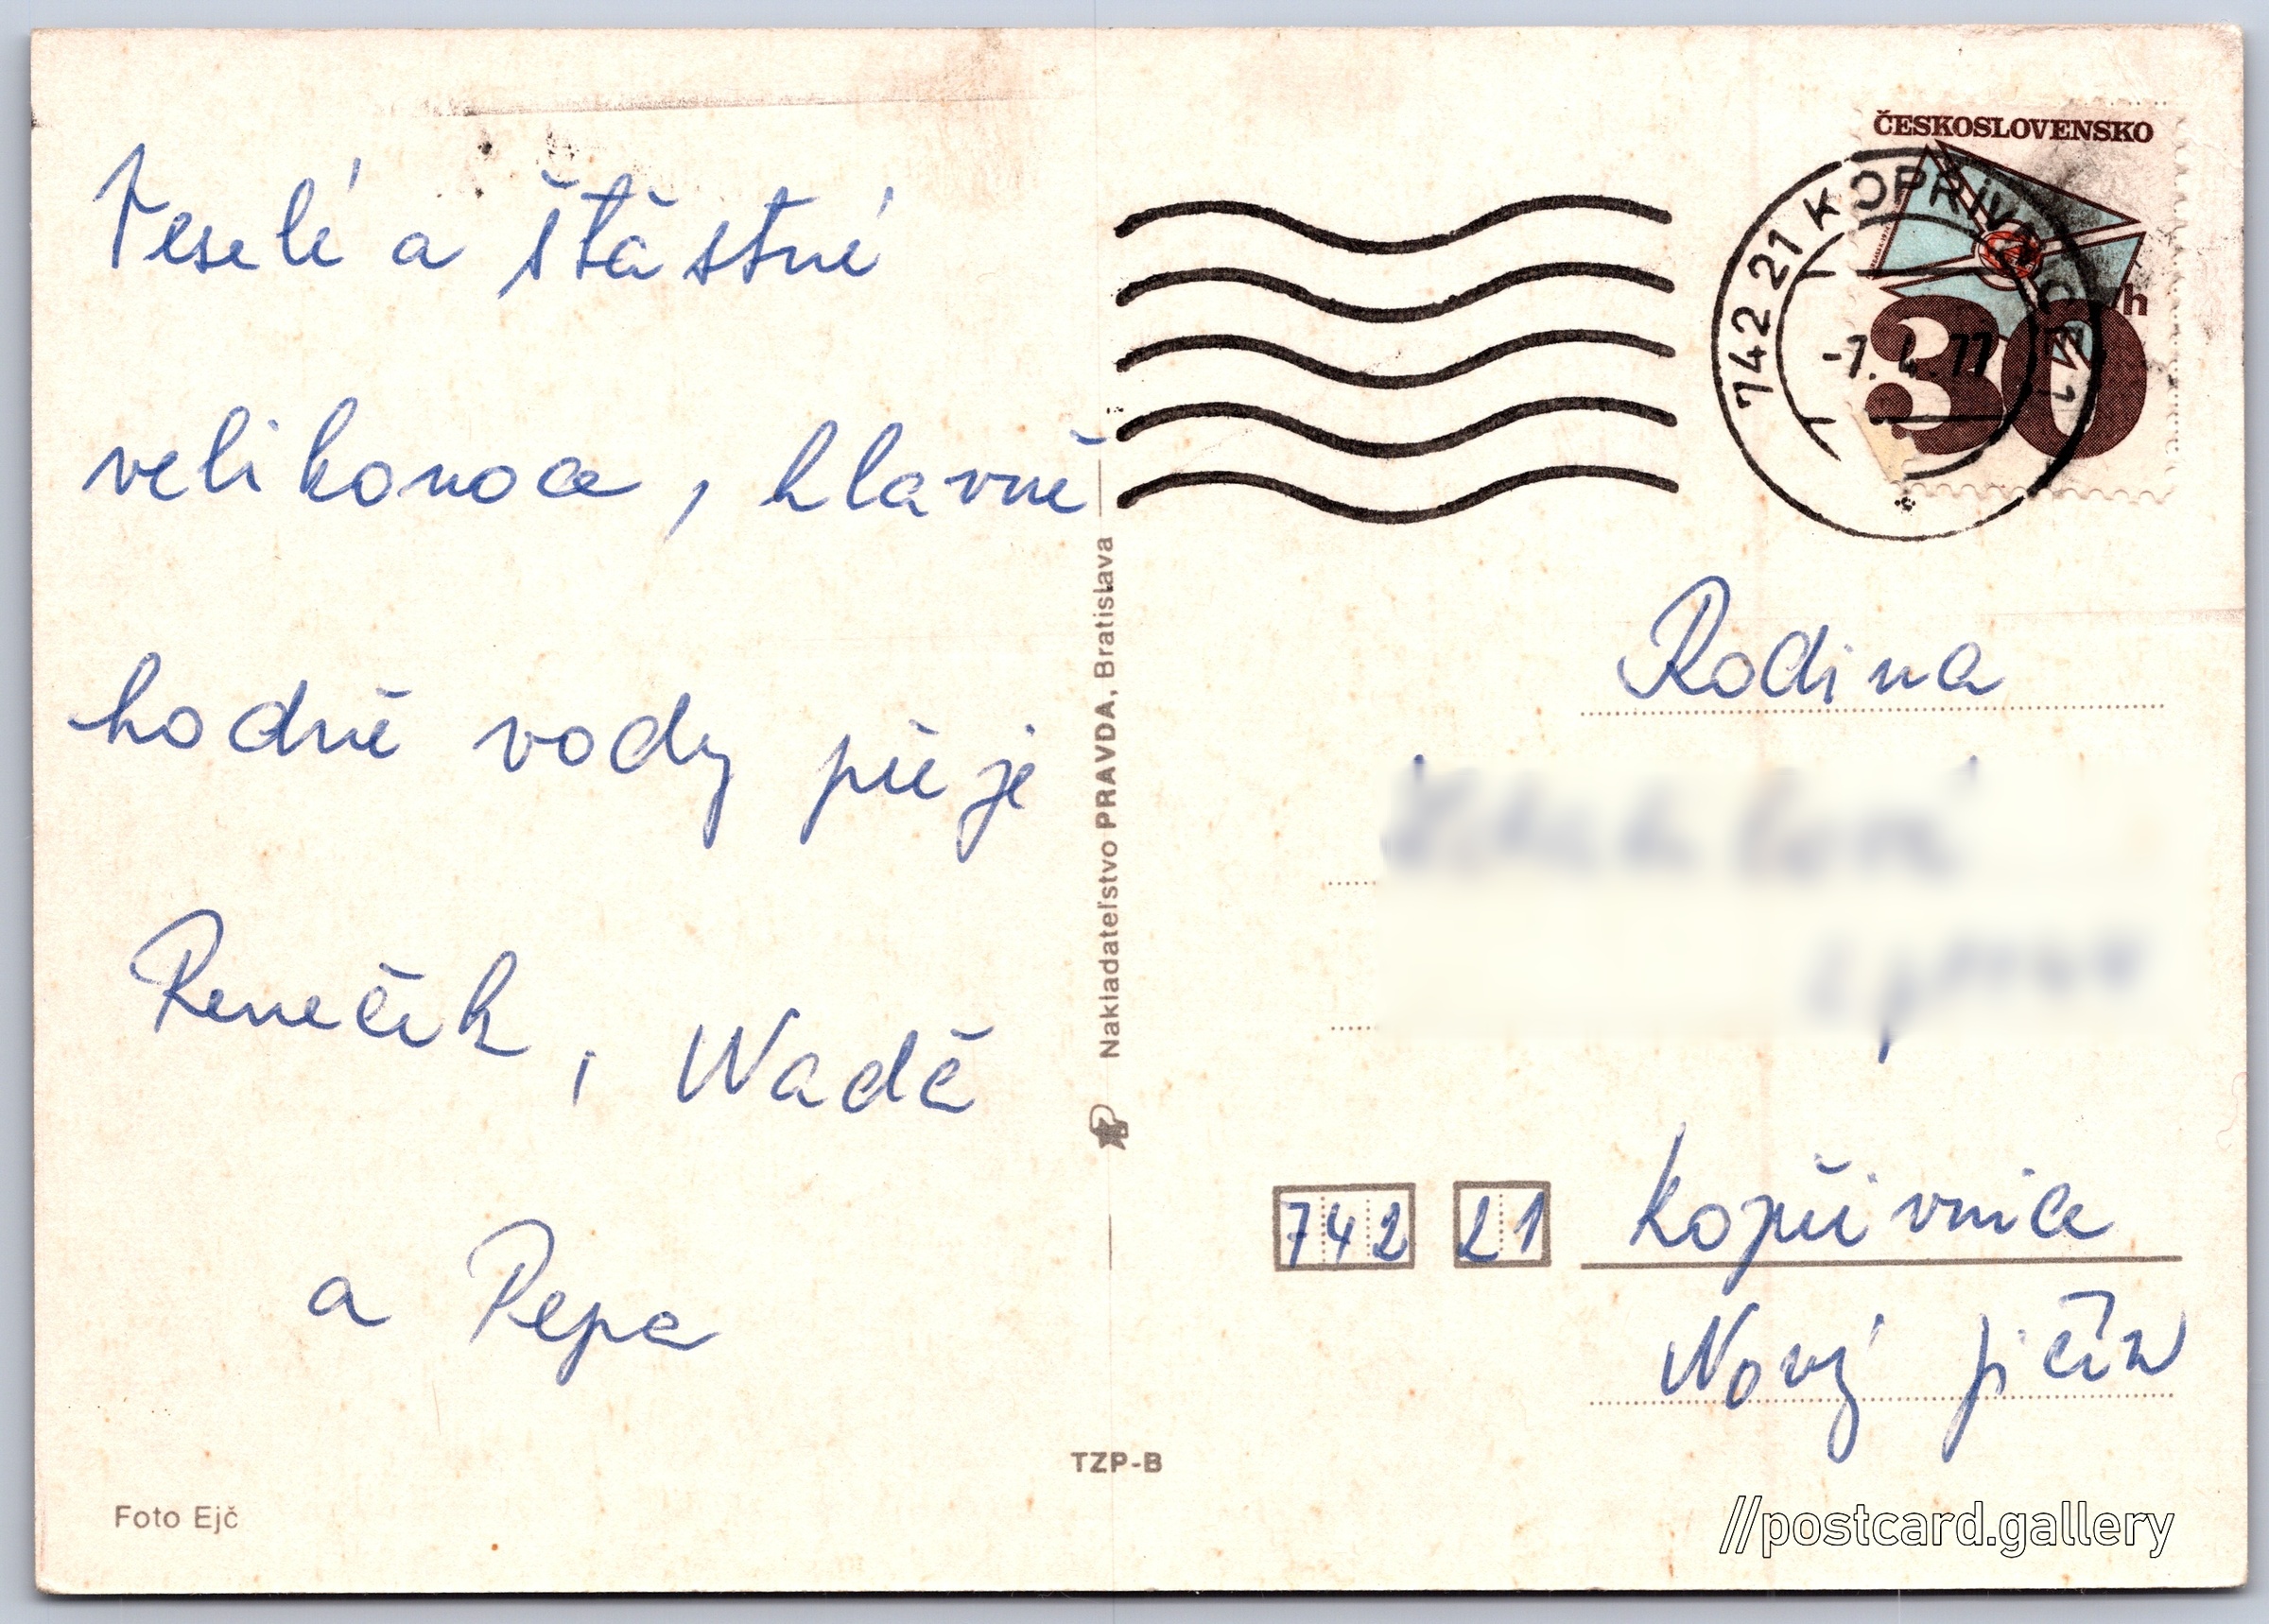 Veselé a štěstné
velikonoce, hlavně
hodně vody přeje
Reneček, Wadě
a Pepa
Foto Ejč
Nakladateľstvo PRAVDA, Bratislava
TZP-B
ČESKOSLOVENSKO
30 h
742 21 KOPŘIVNICE 1
-7.4.77
Rodina
742 21 Kopřivnice
Nový jičín
//postcard.gallery